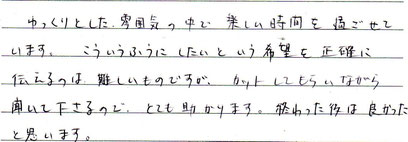 ゆっくりとした雰囲気の中で楽しい時間を過ごせて
います。こういうふうにしたいという希望を正確に
伝えるのは難しいものですが、カットしてもらいながら
聞いて下さるので、とても助かります。終わった後は良かった
と思います。